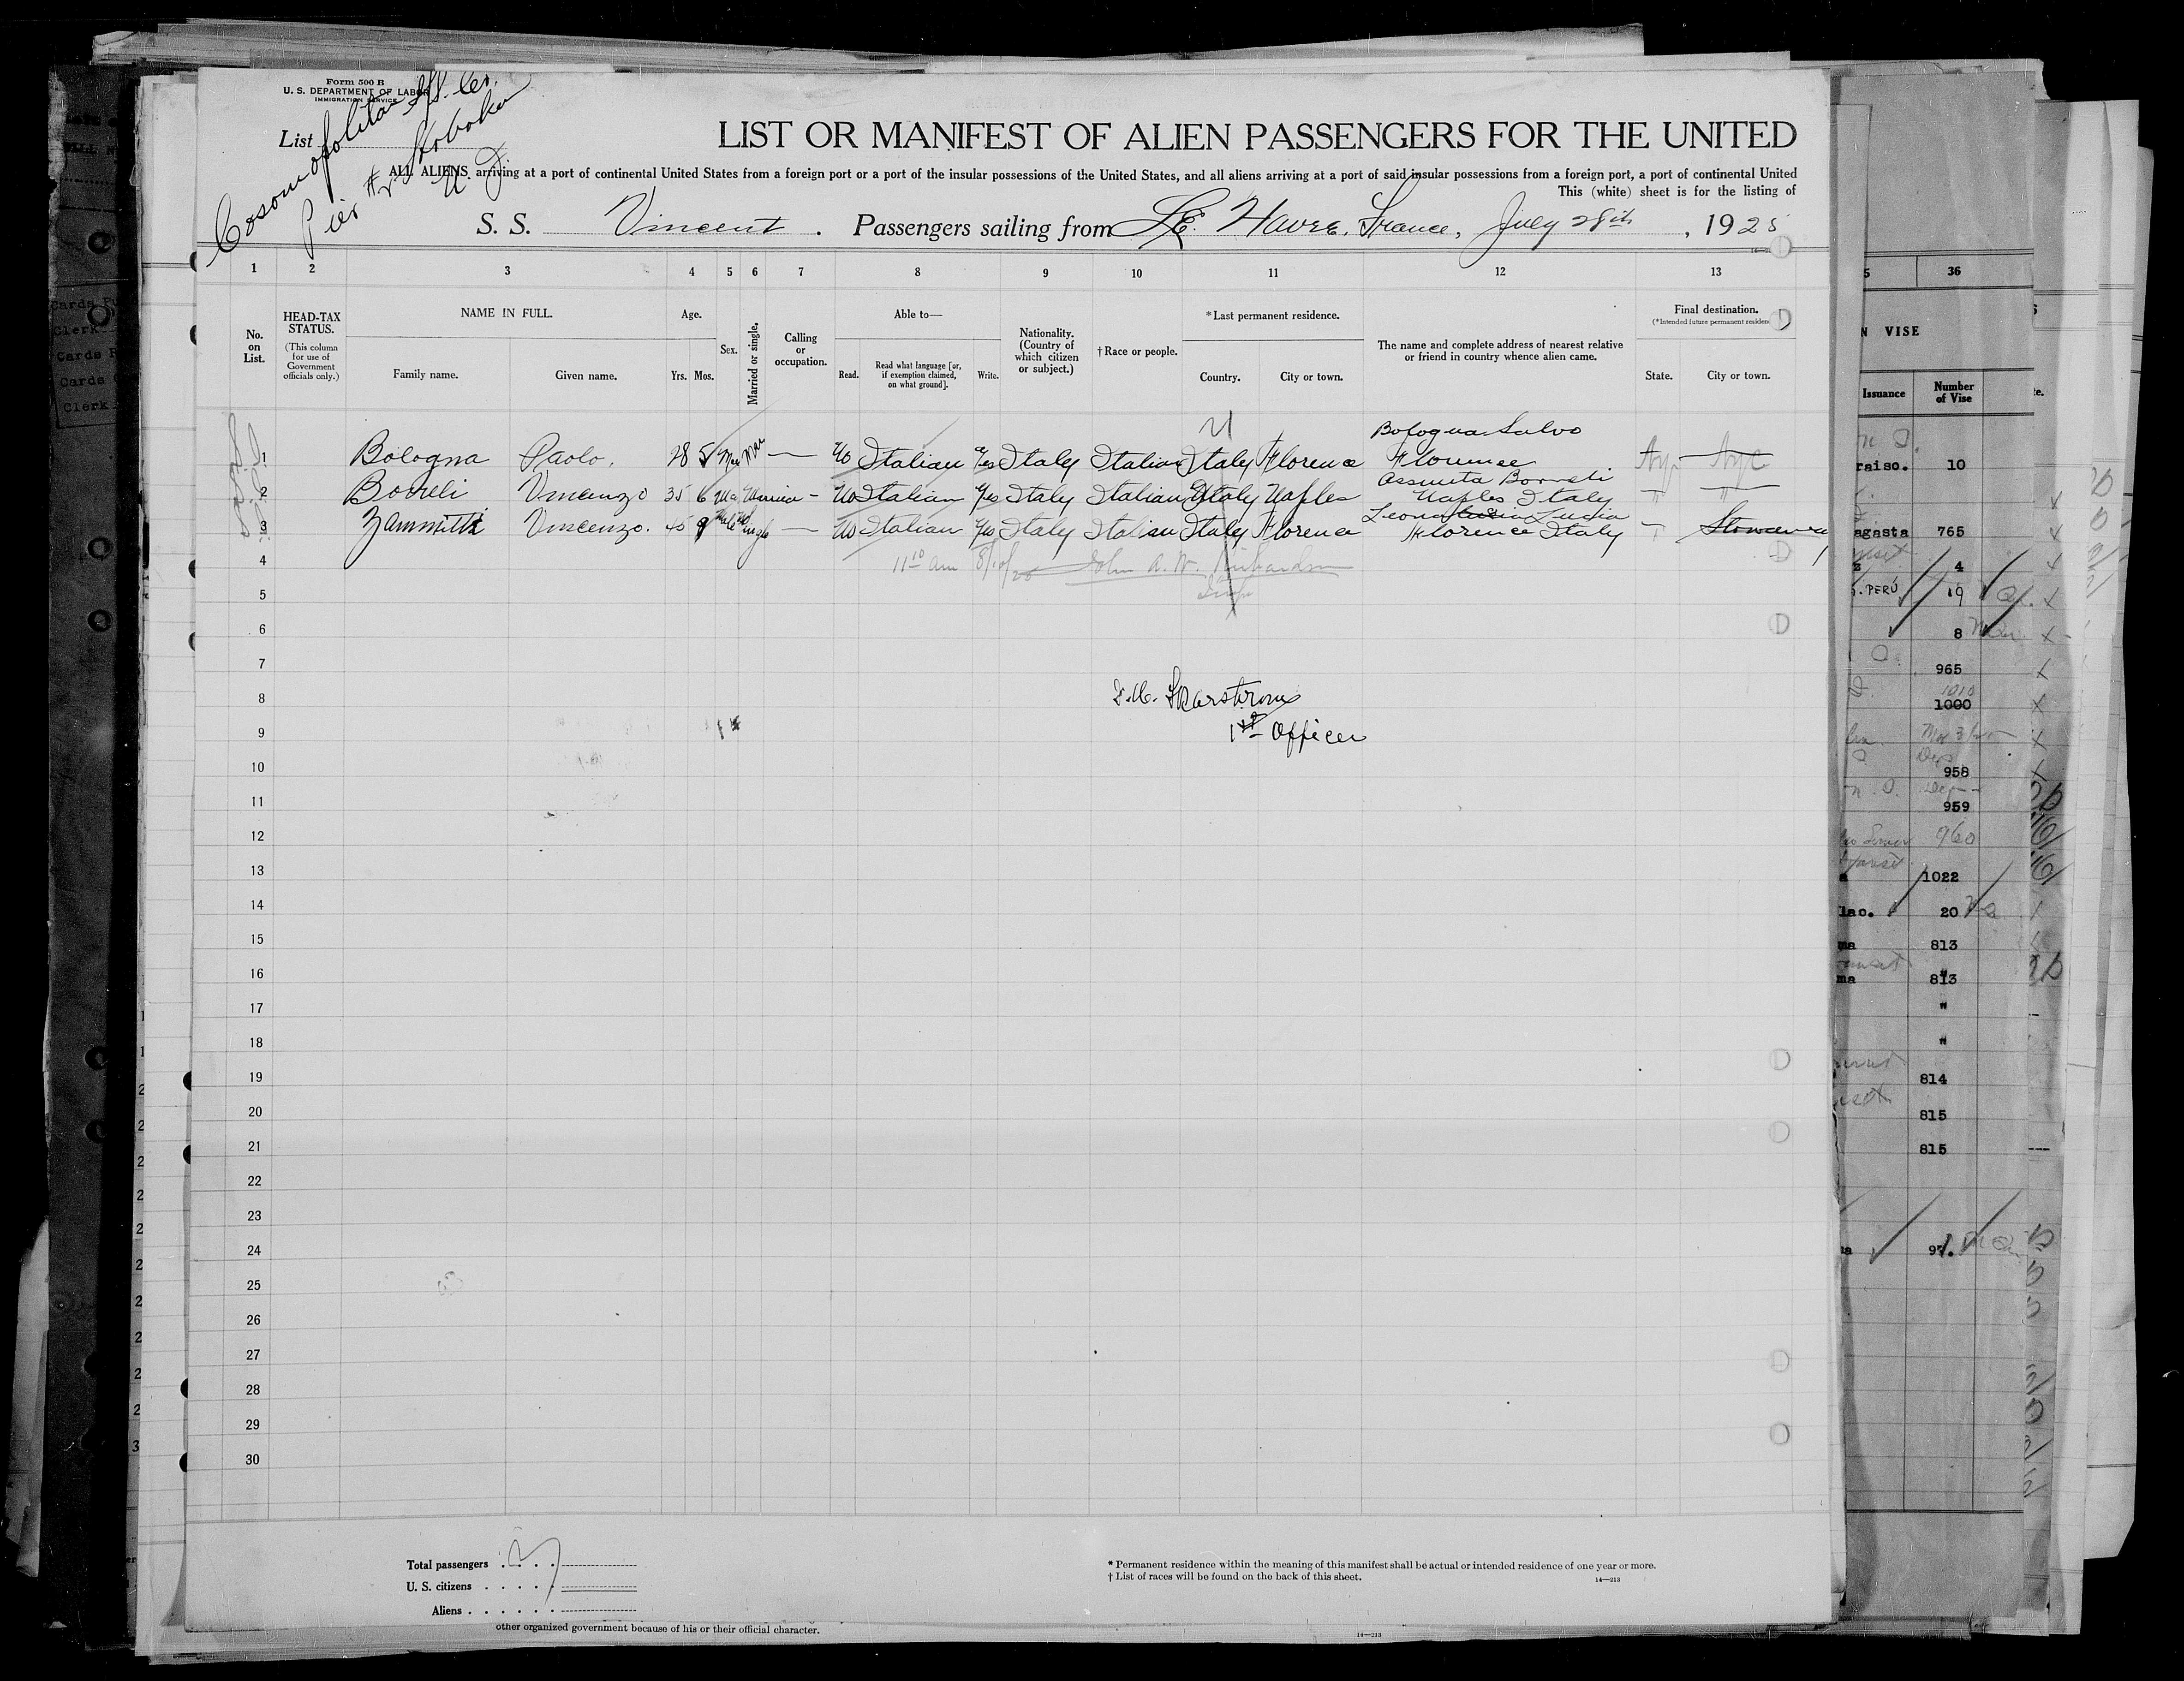 Form 500 B
U. S. DEPARTMENT OF LABOR
IMMIGRATION SERVICE
List
Cosomopolitan SS. Co.
Pier #2 Hoboken
N J
LIST OR MANIFEST OF ALIEN PASSENGERS FOR THE UNITED
ALL ALIENS arriving at a port of continental United States from a foreign port or a port of the insular possessions of the United States, and all aliens arriving at a port of said insular possessions from a foreign port, a port of continental United
This (white) sheet is for the listing of
S. S. Vincent . Passengers sailing from Le Havre, France, July 28th , 1925
1 2 3 4 5 6 7 8 9 10 11 12 13
No. on List.
HEAD-TAX STATUS.
(This column for use of Government officials only.)
NAME IN FULL.
Family name. Given name.
Age.
Yrs. Mos.
Sex.
Married or single.
Calling or occupation.
Able to—
Read. Read what language [or, if exemption claimed, on what ground]. Write.
Nationality. (Country of which citizen or subject.)
† Race or people.
* Last permanent residence.
Country. City or town.
The name and complete address of nearest relative or friend in country whence alien came.
Final destination.
(* Intended future permanent residence)
State. City or town.
Bologna Salvo
1 Bologna Paolo. 28 5 Mar — Italian Yes Italy Italian Italy Florence Florence
Assunta Borreli
2 Borreli Vincenzo 35 6 Ma Married — Italian Yes Italy Italian Italy Naples Naples Italy
Leona Lucia
3 Zammitti Vincenzo. 45 9 Male Single — Italian Yes Italy Italian Italy Florence Florence Italy Stowaway
4 11 10 am 8/10/25 John A. W. Richardson
5 Insp
6
7
8 Skarstrom
9 1st Officer
10
11
12
13
14
15
16
17
18
19
20
21
22
23
24
25
26
27
28
29
30
Total passengers
U. S. citizens
Aliens
* Permanent residence within the meaning of this manifest shall be actual or intended residence of one year or more.
† List of races will be found on the back of this sheet.
14—213
other organized government because of his or their official character.
14—213
36
N VISE
Issuance Number of Vise
raiso. 10
agasta 765
4
S. PERÚ 19
8
965
1010
1000
958
959
960
1022
lao. 20
ma 813
ma 813
"
"
814
815
815